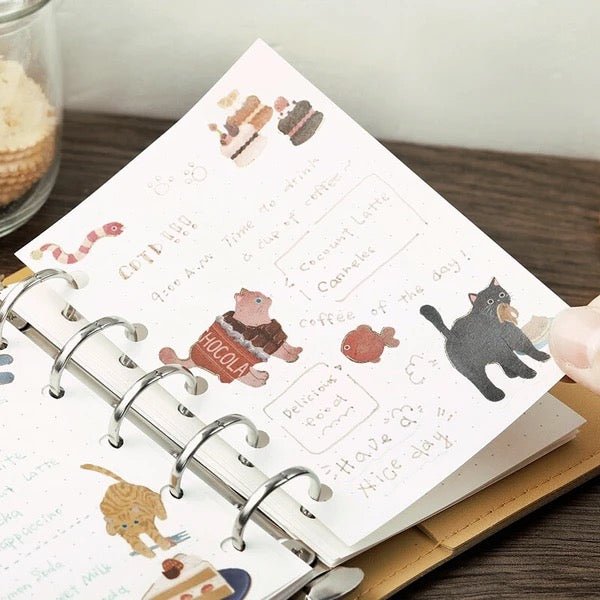 COTD!!!
9:00 A.M. Time to drink
a cup of coffee~
Coconut Latte
Canneles
coffee of the day!
CHOCOLA
Delicious
food
Have a
Nice day
Latte
cappuccino
Soda
Milk